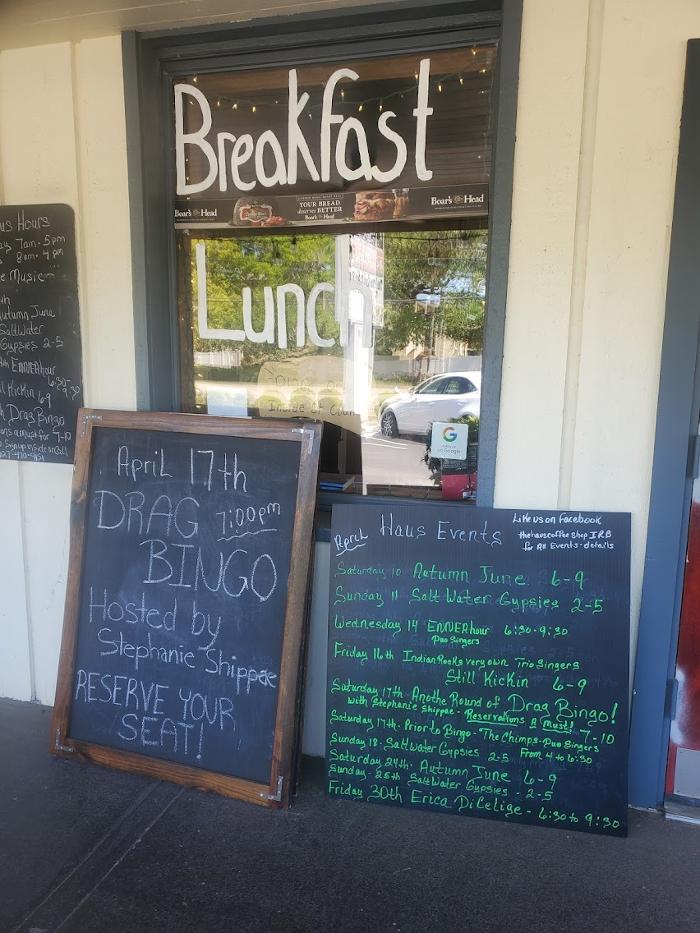 Breakfast
Boar's Head
YOUR BREAD
deserves BETTER
Boar's Head
Boar's Head
Lunch
Inside or
us Hours
7am - 5pm
8am - 4pm
e Music
th
utumn June
SaltWater
Gypsies 2-5
ENNERhour
6:30-9:30
l Kickin 6-9
Drag Bingo
7-10
April 17th
DRAG 7:00pm
BINGO
Hosted by
Stephanie Shippae
RESERVE YOUR
SEAT!
April Haus Events
Like us on Facebook
thehauscoffeeshop IRB
for All Events-details
Saturday 10 Autumn June 6-9
Sunday 11 Salt Water Gypsies 2-5
Wednesday 14 ENNERhour 6:30-9:30
Duo Singers
Friday 16th Indian Rocks very own Trio Singers
Still Kickin 6-9
Saturday 17th - Anothe Round of Drag Bingo!
with Stephanie Shippae - Reservations a Must! 7-10
Saturday 17th - Prior to Bingo - The Chimps - Duo Singers
From 4 to 6:30
Sunday 18 - Saltwater Gypsies 2-5
Saturday 24th - Autumn June 6-9
Sunday - 25th Saltwater Gypsies - 2-5
Friday 30th Erica DiCelige - 6:30 to 9:30